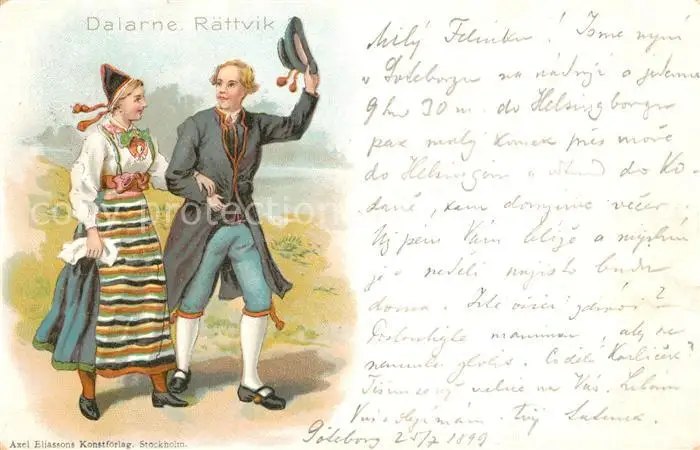 Dalarne. Rättvik
Milý Felinku! Jsme nyní
v Göteborgu na nádraží a jedeme
9 h 30 m do Helsingborgu
pak malý kousek přes moře
do Helsingöru a do Ko-
daně, kam dorazíme večer
Už jsem Vám blíže a myslím
že v neděli najisto budu
doma. Jste všici zdrávi?
Poslouchejte maminku, aby se
nemusela zlobit. Co dělá Karlíček?
Těším se už velice na Vás. Líbám
Vás a objímám. Tvůj
Göteborg 25/7 1899
Axel Eliassons Konstförlag. Stockholm.